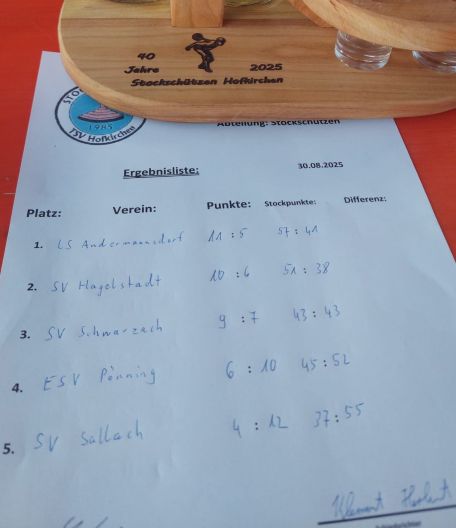 40
Jahre 2025
Stockschützen Hofkirchen
1985
TSV Hofkirchen
Abteilung: Stockschützen
Ergebnisliste: 30.08.2025
Platz: Verein: Punkte: Stockpunkte: Differenz:
1. LS Andermannsdorf 11 : 5 57 : 41
2. SV Hagelstadt 10 : 6 51 : 38
3. SV Schwarzach 9 : 7 43 : 43
4. ESV Pönning 6 : 10 45 : 52
5. SV Sallach 4 : 12 37 : 55
Klement